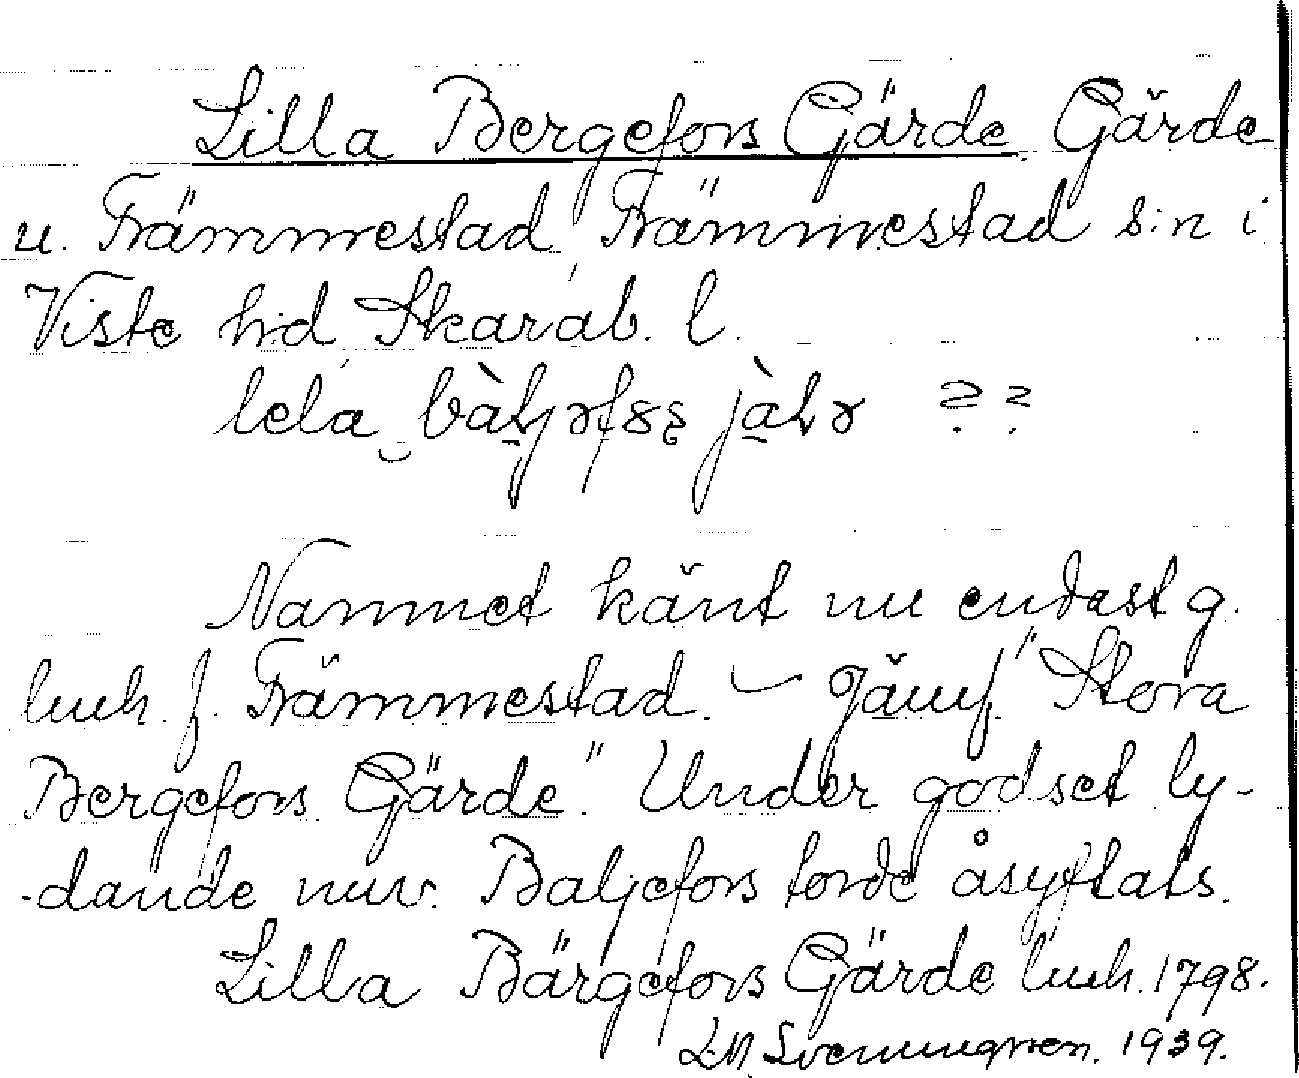 Lilla Bergefors Gärde Gärde
u. Främmestad Främmestad s:n i
Viste h:d Skarab. l.
lela
Namnet känt nu endast g.
luch. f. Främmestad. – Jämf. "Stora
Bergefors Gärde". Under godset ly-
-dande nuv. Baljefors torde åsyftats.
Lilla Bärgefors Gärde luch. 1798.
1939.